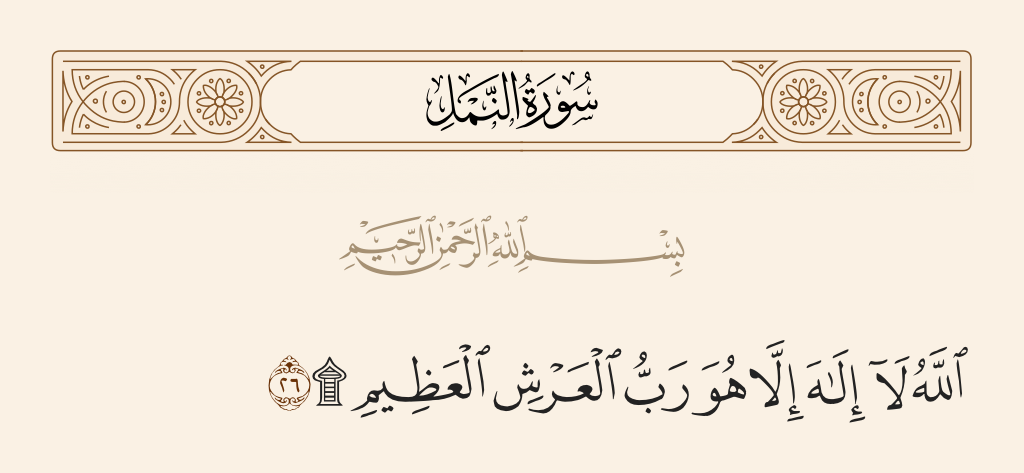 سُورَةُ النَّمْلِ
بِسْمِ ٱللَّهِ ٱلرَّحْمَٰنِ ٱلرَّحِيمِ
ٱللَّهُ لَآ إِلَٰهَ إِلَّا هُوَ رَبُّ ٱلْعَرْشِ ٱلْعَظِيمِ ۩ ٢٦